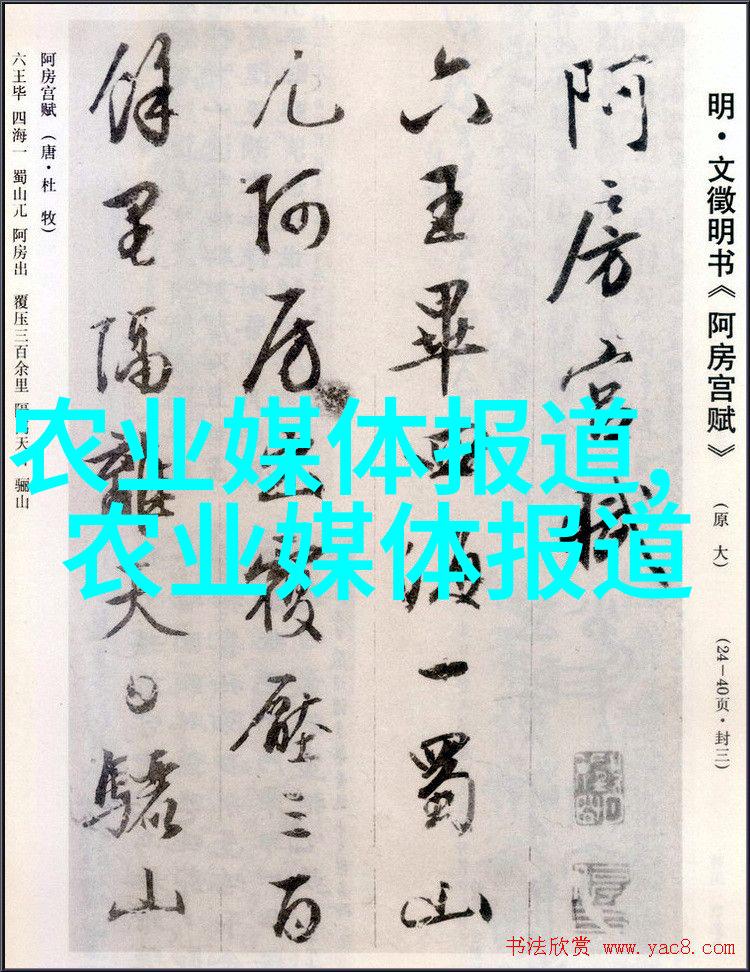 明·文徵明书《阿房宫赋》
(原大)
(24—40页·封三)
阿房宫赋
六王畢四海一蜀山
兀阿房出覆壓三百
餘里隔離天日驪山
阿房宫赋(唐·杜牧)
六王毕 四海一 蜀山兀 阿房出 覆压三百余里 隔 天 骊山
农业媒体报道,
农业媒体报道
书法欣赏 www.yac8.com